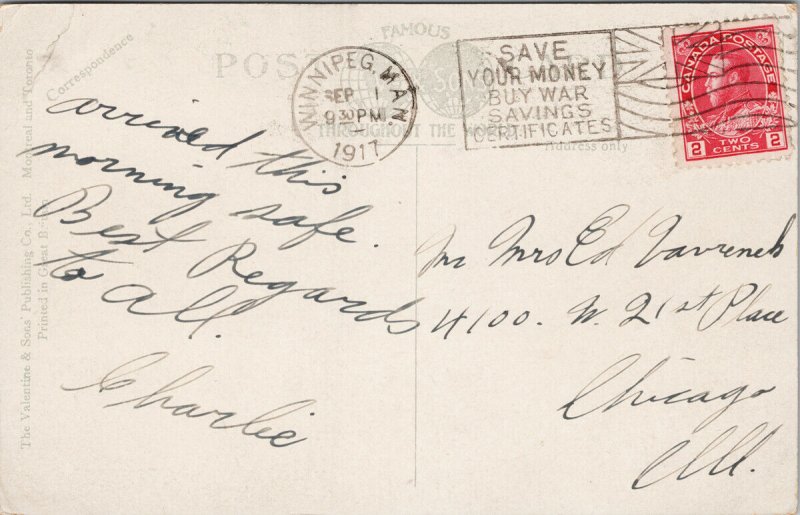 FAMOUS
THROUGHOUT THE WORLD
POST
Correspondence
Address only
WINNIPEG, MAN.
SEP 1
9 30 PM
1917
SAVE
YOUR MONEY
BUY WAR
SAVINGS
CERTIFICATES
CANADA POSTAGE
2 TWO CENTS 2
arrived this
morning safe.
Best Regards
to all.
Charlie
Mr Mrs Ed
4100. W. 21st Place
Chicago
Ill.
The Valentine & Sons' Publishing Co., Ltd. Montreal and Toronto
Printed in Great